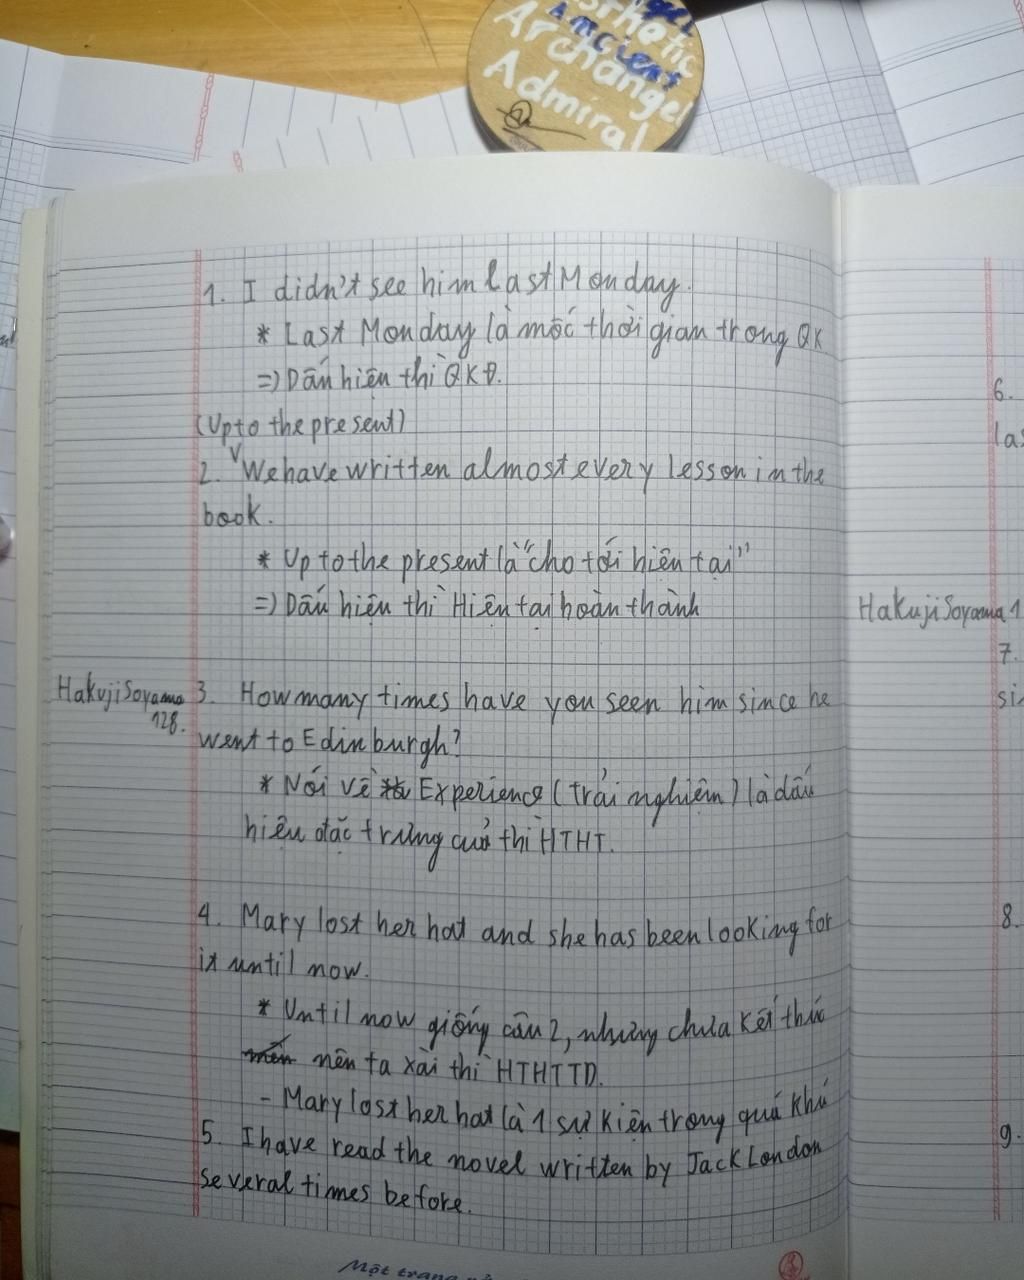 Ancient
Archangel
Admiral
1. I didn't see him last Monday.
* Last Monday là mốc thời gian trong QK
=) Dấu hiệu thì QKĐ.
(Up to the present)
2. V We have written almost every lesson in the
book.
* Up to the present là "cho tới hiện tại"
=) Dấu hiệu thì Hiện tại hoàn thành
HakujiSoyama
128.
3. How many times have you seen him since he
went to Edinburgh?
* Nói về Experience (trải nghiệm) là dấu
hiệu đặc trưng của thì HTHT.
4. Mary lost her hat and she has been looking for
it until now.
* Until now giống câu 2, nhưng chưa kết thúc
nên ta xài thì HTHTTD.
- Mary lost her hat là 1 sự kiện trong quá khứ
5. I have read the novel written by Jack London
several times before.
Một trang
6.
las
HakujiSoyama 1
7.
si
8.
9.